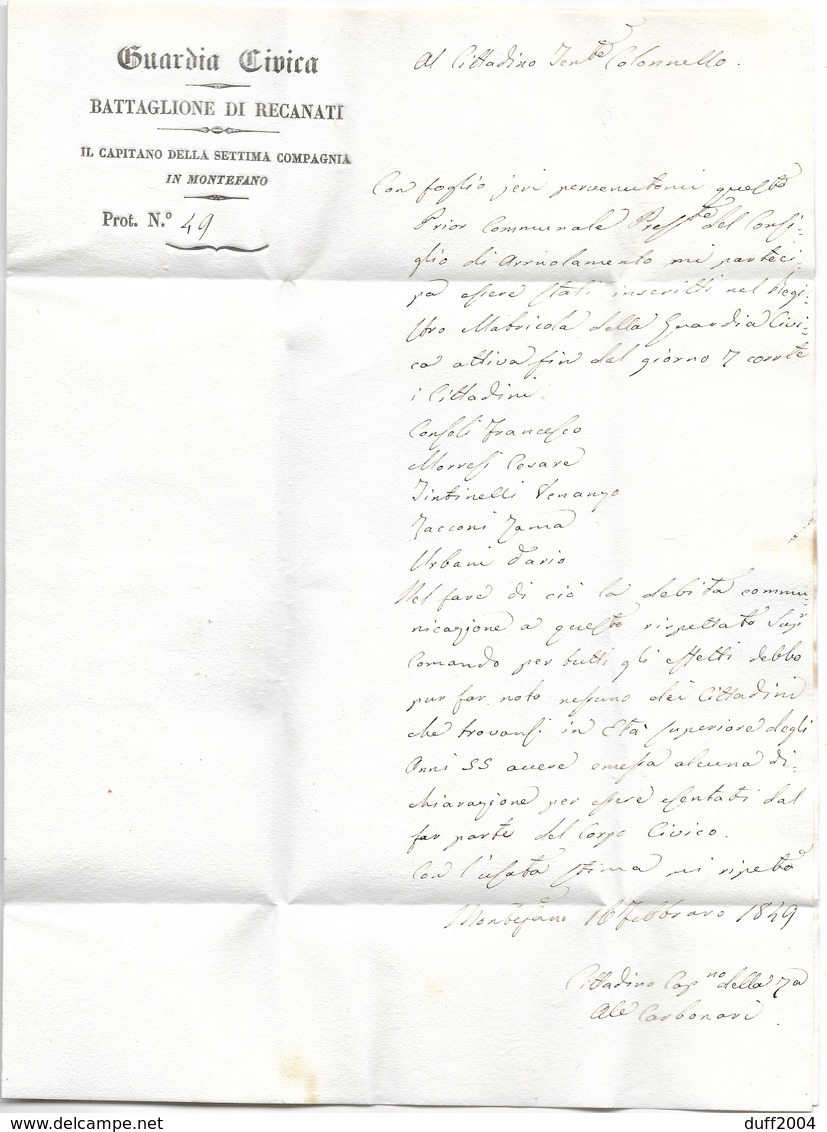 Guardia Civica
BATTAGLIONE DI RECANATI
IL CAPITANO DELLA SETTIMA COMPAGNIA
IN MONTEFANO
Prot. N.° 49
Al Cittadino Tente Colonnello.
Con foglio jeri pervenutomi questo
Prior Communale Presste del Consi-
glio di Arruolamento mi parteci-
pa essere stati inscritti nel Regi-
stro Matricola della Guardia Civi-
ca attiva fin dal giorno 7 corrte
i Cittadini
Consoli Francesco
Morresi Cesare
Tintinelli Venanzo
Zacconi Zama
Urbani Dario
Nel fare di ciò la debita commu-
nicazione a questo rispettato Supr
Comando per tutti gli effetti debbo
pur far noto nessuno dei Cittadini
che trovansi in Età superiore degli
Anni 55 avere emessa alcuna di-
chiarazione per essere esentati dal
far parte del Corpo Civico.
Con l'usata stima mi ripeto
Montefano 16 Febbraro 1849
Cittadino Capno della 7a
Ale Carbonari
delcampe.net
duff2004